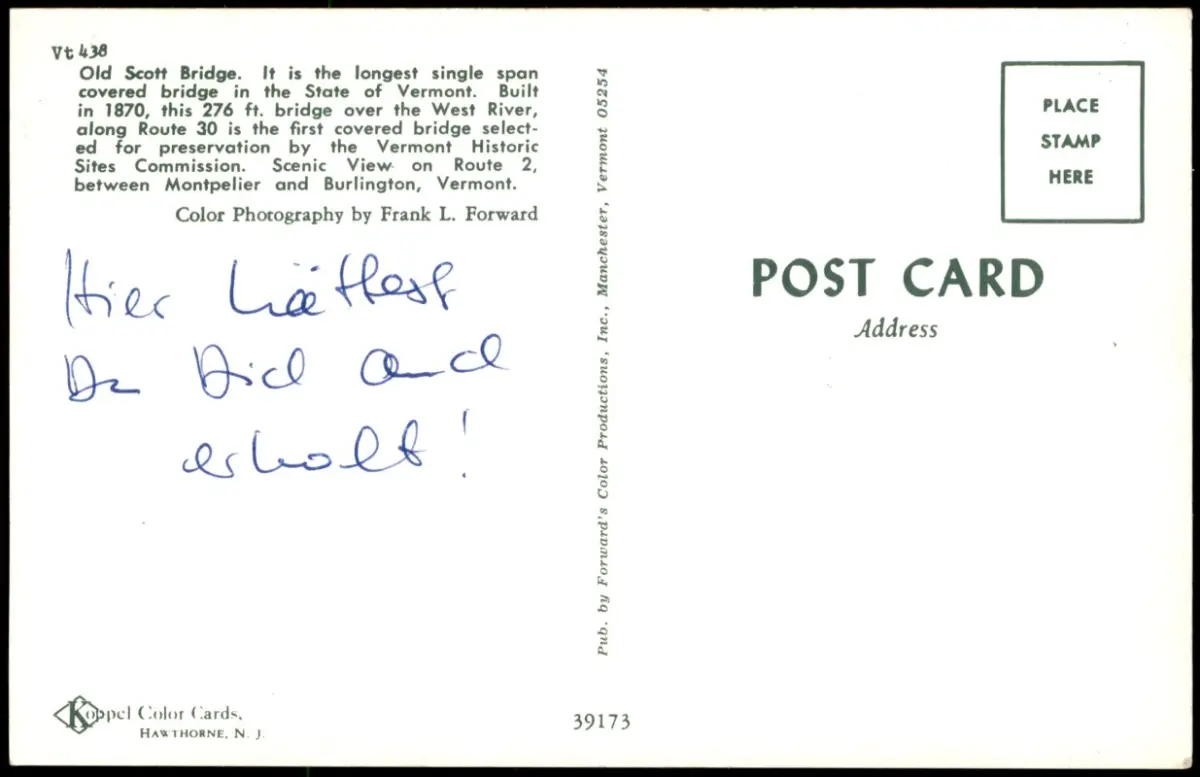 Vt 438
Old Scott Bridge. It is the longest single span
covered bridge in the State of Vermont. Built
in 1870, this 276 ft. bridge over the West River,
along Route 30 is the first covered bridge select-
ed for preservation by the Vermont Historic
Sites Commission. Scenic View on Route 2,
between Montpelier and Burlington, Vermont.
Color Photography by Frank L. Forward
Hier hättest
Du Dich auch
erholt!
Koppel Color Cards,
HAWTHORNE, N. J.
Pub. by Forward's Color Productions, Inc., Manchester, Vermont 05254
39173
PLACE
STAMP
HERE
POST CARD
Address